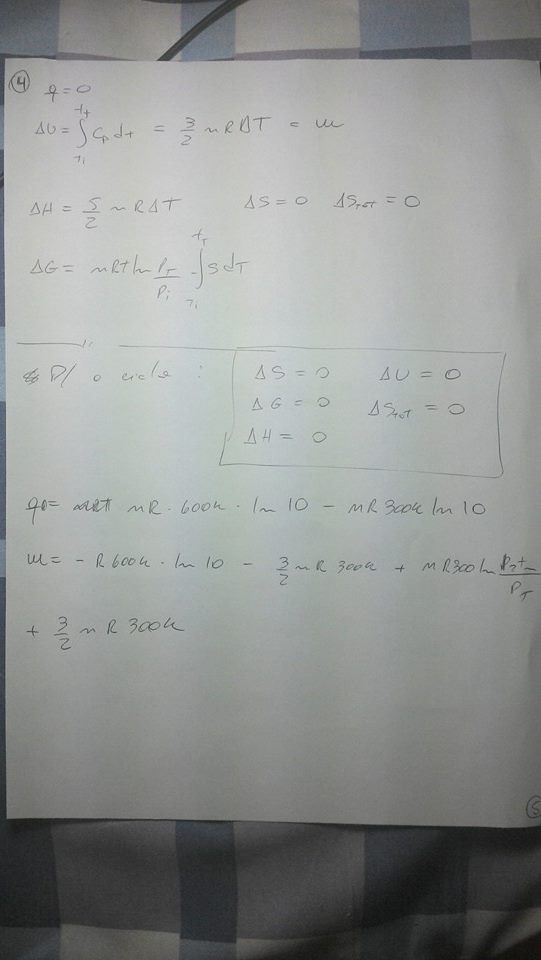 4
q = 0
ΔU = ∫ Cp dT = 3/2 nRΔT = w
ΔH = 5/2 nRΔT ΔS = 0 ΔS_TOT = 0
ΔG = nRT ln P_f/P_i - ∫ S dT
P/ o ciclo :
ΔS = 0 ΔU = 0
ΔG = 0 ΔS_TOT = 0
ΔH = 0
q = nR · 600K · ln 10 - nR 300K ln 10
w = - R 600K · ln 10 - 3/2 nR 300K + nR 300 ln
+ 3/2 nR 300K
5